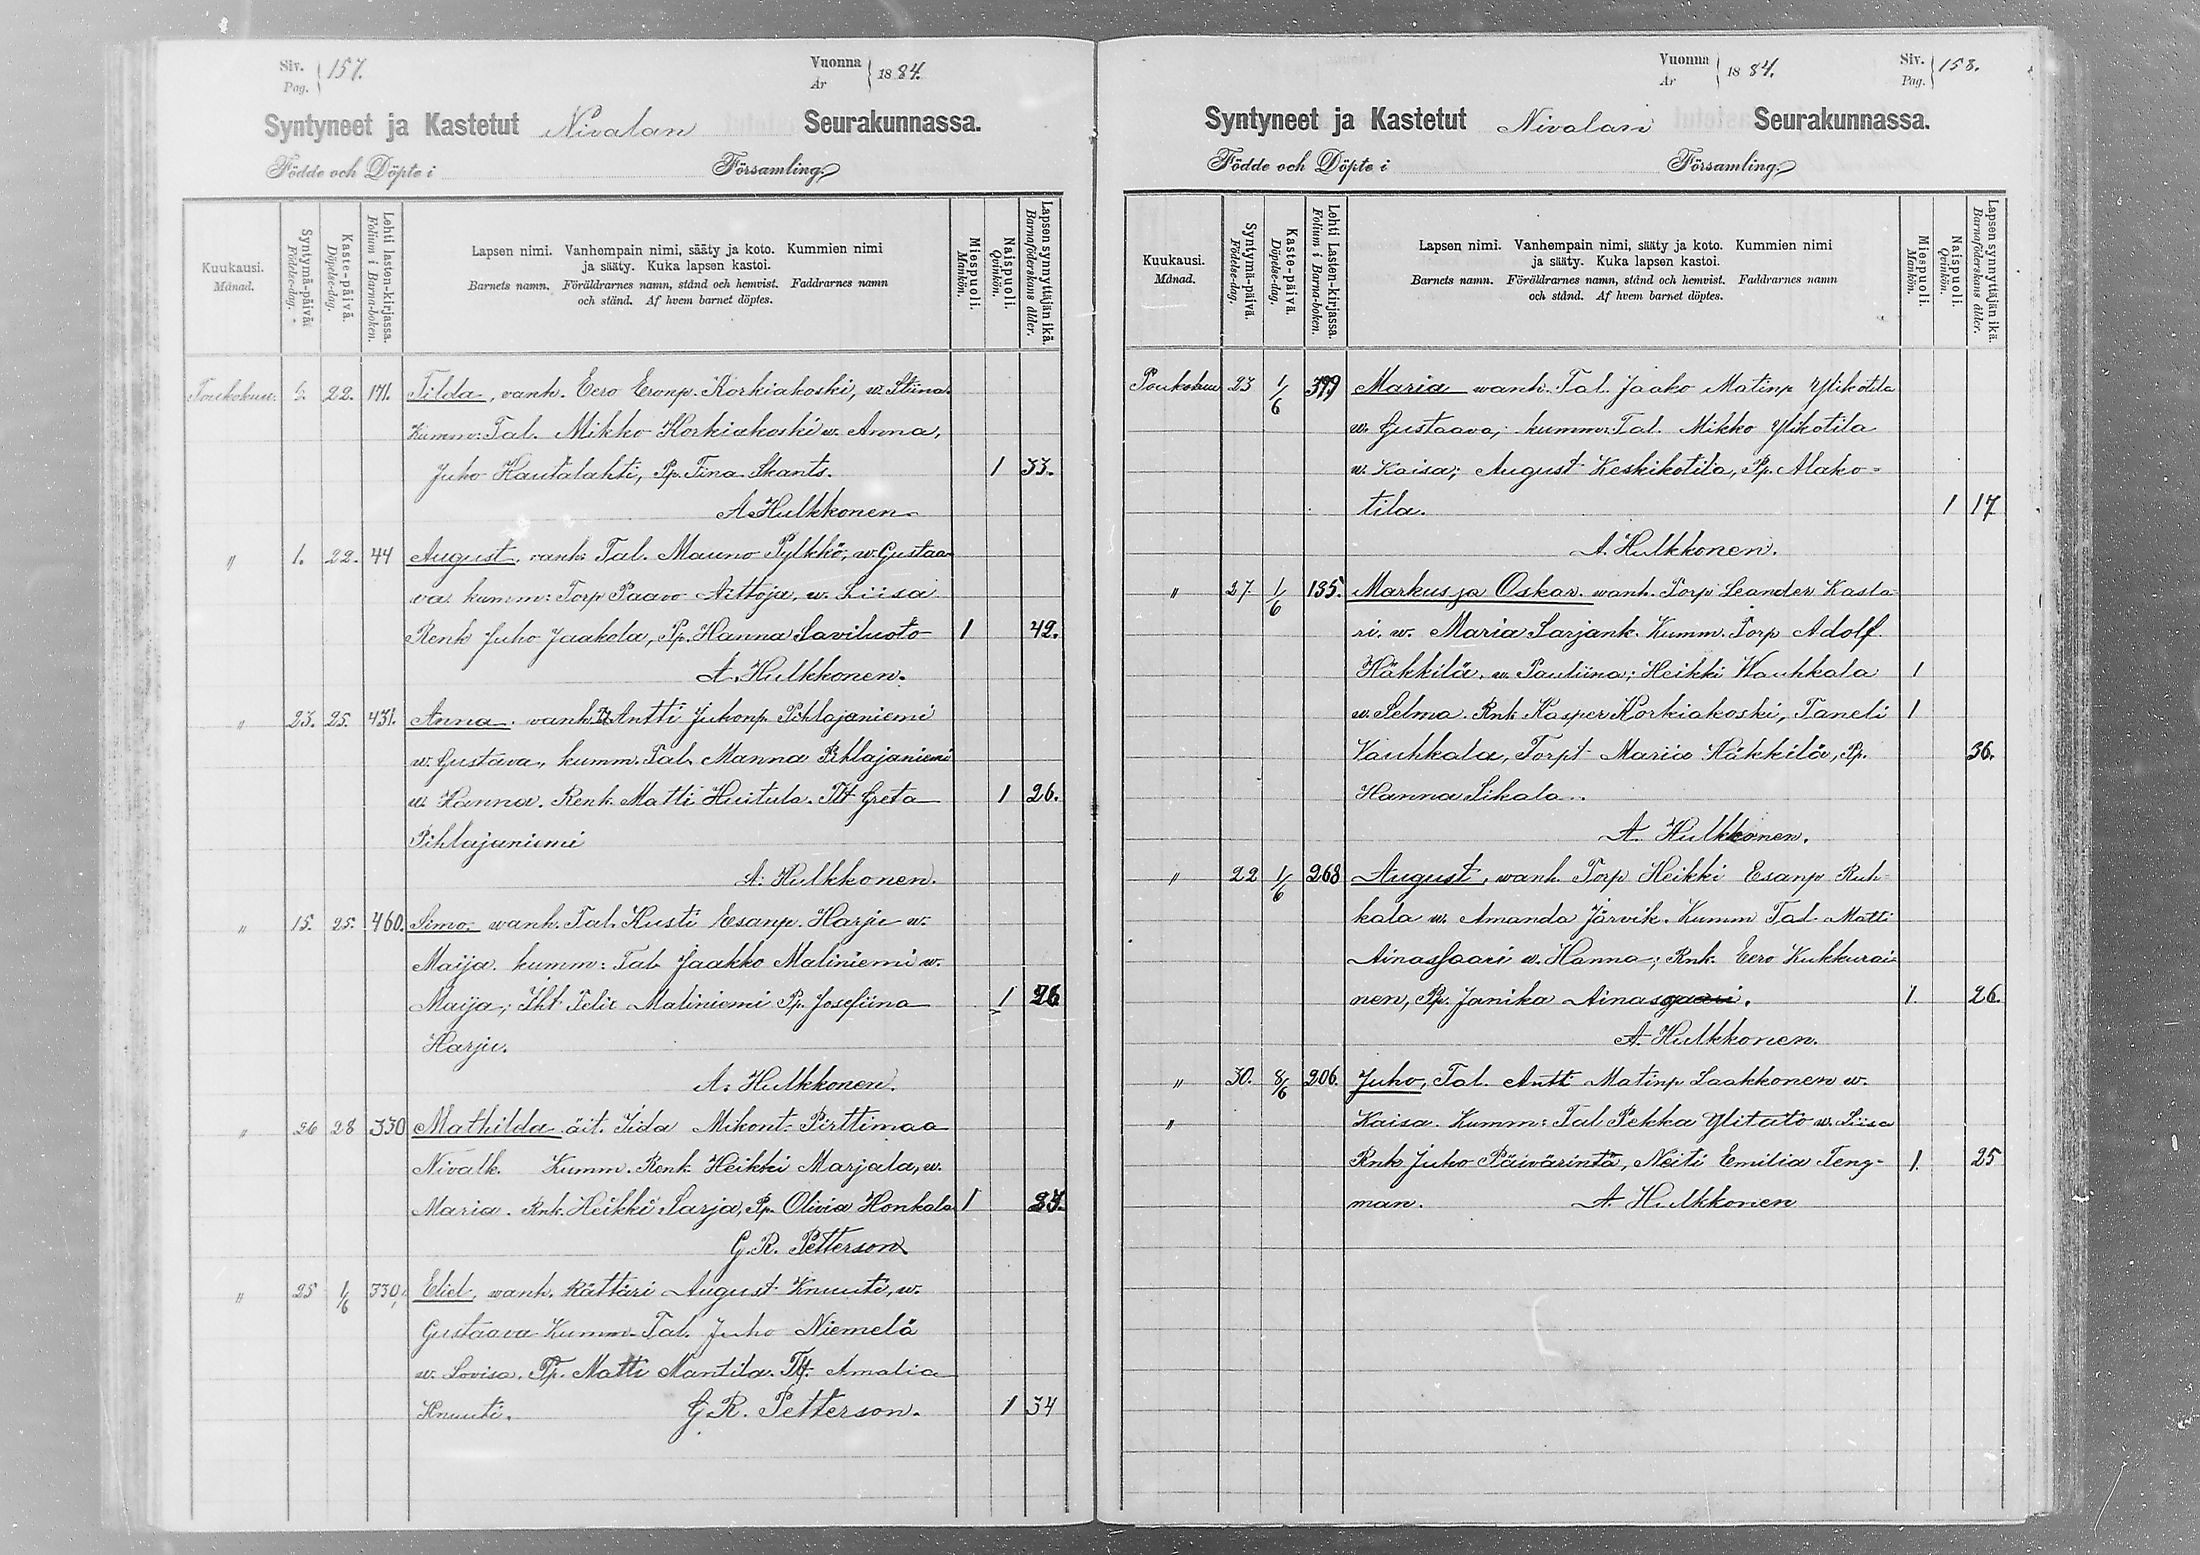 Siv. Pag. 157. Vuonna År 1884.
Syntyneet ja Kastetut Nivalan Seurakunnassa.
Födde och Döpte i Församling.
Kuukausi. Månad.
Syntymä-päivä. Födelse-dag.
Kaste-päivä. Döpelse-dag.
Lehti lasten-kirjassa. Folium i Barna-boken.
Lapsen nimi. Vanhempain nimi, sääty ja koto. Kummien nimi
ja sääty. Kuka lapsen kastoi.
Barnets namn. Föräldrarnes namn, stånd och hemvist. Faddrarnes namn
och stånd. Af hvem barnet döptes.
Miespuoli. Mankön.
Naispuoli. Qvinkön.
Lapsen synnyttäjän ikä. Barnaföderskans ålder.
Toukokuu. 22. 171. Tilda, vanh. Eero Eronp. Korkiakoski, w. Stiina.
Kumm: Tal. Mikko Korkiakoski w. Anna,
Juho Hautalahti, Pp. Tina Skants. 1 33.
A. Hulkkonen.
" 1. 22. 44 August, vanh. Tal. Mauno Pylkkö, w. Gustaa-
va. kumm: Torp Paavo Aittoja, w. Liisa
Renk Juho Jaakola, Pp. Hanna Saviluoto 1 42.
A. Hulkkonen.
" 23. 25. 431. Anna. vanh. Antti Juhonp. Pihlajaniemi
w. Gustava, kumm. Tal. Manna Pihlajaniemi
w. Hanna. Renk. Matti Huitula. Tt Greta 1 26.
Pihlajaniemi
A. Hulkkonen.
" 15. 25. 460. Simo. wanh. Tal. Kusti Esanp. Harju w.
Maija. kumm: Tal. Jaakko Maliniemi w.
Maija; Maliniemi Pp. Josefiina 1 26
Harju.
A. Hulkkonen.
" 26 28 330 Mathilda äit. Iida Mikont. Pirttimaa
Nivalk. Kumm. Renk. Heikki Marjala, w.
Maria. Rnk. Heikki Sarja, Pp. Olivia Honkala 1 27.
G. R. Petterson
" 25 1/6 330, Eliel, wanh. Rättäri August Knuuti, w.
Gustaava Kumm. Tal. Juho Niemelä
w. Lovisa. Pp. Matti Mantila. Tt. Amalia
Knuuti. G. R. Petterson. 1 34
Vuonna År 1884. Siv. Pag. 158.
Syntyneet ja Kastetut Nivalan Seurakunnassa.
Födde och Döpte i Församling.
Kuukausi. Månad.
Syntymä-päivä. Födelse-dag.
Kaste-päivä. Döpelse-dag.
Lehti Lasten-kirjassa. Folium i Barna-boken.
Lapsen nimi. Vanhempain nimi, sääty ja koto. Kummien nimi
ja sääty. Kuka lapsen kastoi.
Barnets namn. Föräldrarnes namn, stånd och hemvist. Faddrarnes namn
och stånd. Af hvem barnet döptes.
Miespuoli. Mankön.
Naispuoli. Qvinkön.
Lapsen synnyttäjän ikä. Barnaföderskans ålder.
Toukokuu 23 1/6 399 Maria wanh. Tal. Jaako Matinp Ylikotila
w. Gustaava; kumm: Tal. Mikko Ylikotila
w. Kaisa; August Keskikotila, Pp. Alako=
tila. 1 17
A. Hulkkonen.
" 27. 1/6 135. Markus ja Oskar. wanh. Torp Leander Kasta
ri. w. Maria Sarjank. Kumm. Torp Adolf
Häkkilä, w. Pauliina; Heikki Wauhkala 1
w. Selma. Rnk Kasper Korkiakoski, Taneli 1
Vauhkala, Torpt Maria Häkkilä, Pp. 36.
Hanna Sikala.
A. Hulkkonen.
" 22 1/6 268 August, wanh. Torp Heikki Esanp Ruh-
kala w. Amanda Järvik. Kumm Tal Matti
Ainassaari w. Hanna; Rnk. Eero Kukkurai-
nen, Pp. Janika Ainasgaari. 1. 26.
A. Hulkkonen.
" 30. 8/6 206. Juho, Tal. Antt Matinp Laakkonen w.
" Kaisa. Kumm: Tal Pekka Ylitalo w. Liisa
Rnk Juho Päivärinta, Neiti Emilia Teng- 1. 25
man. A. Hulkkonen